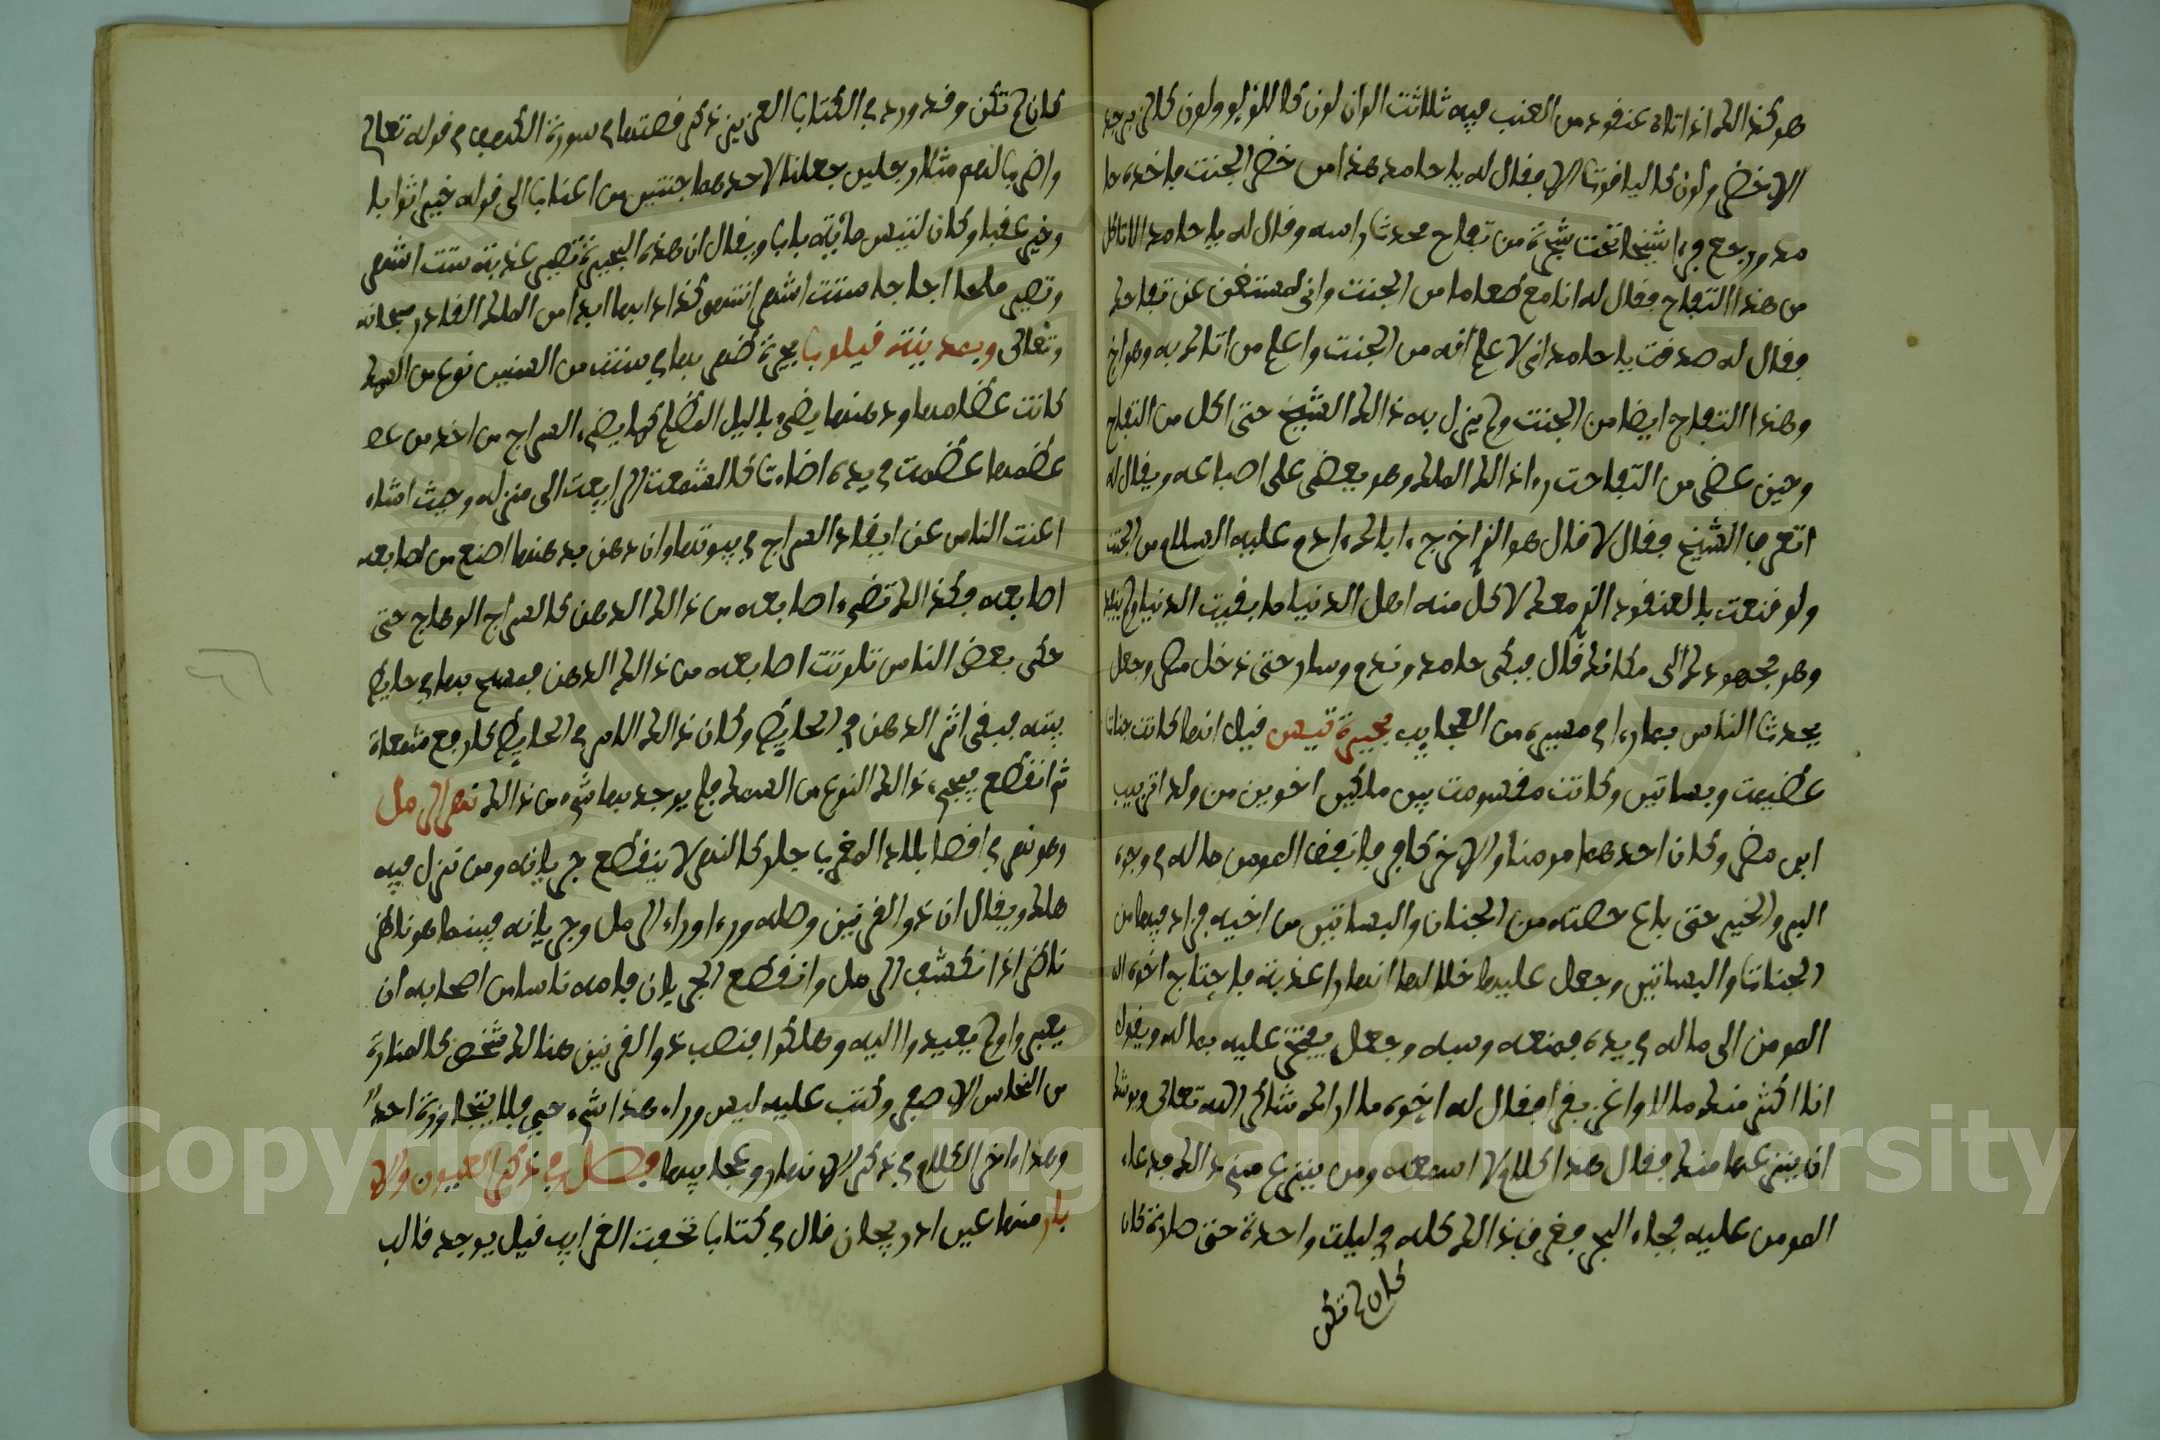 هو كذالك اذ اتاه عنقود من العنب فيه ثلاثت الوان لون كاللؤلؤ ولون كالزبرجد
الاخضر ولون كالياقوت الا فقال له يا حامد هذا من خضر الجنت فاخده حا
مد ورجع فرءا شيخا تحت شجرة من تفاح محدث راسه وقال له يا حامد الا تاكل
من هذا التفاح فقال له انا مع طعاما من الجنت واني لمستغن عن تفاحك
فقال له صدقت يا حامد اني لاعلم انه من الجنت واعلم من اتاك به وهو اخ
وهذا التفاح ايضا من الجنت ولم يزل به ذالك الشيخ حتى اكل من التفاح
وحين عض من التفاحت رءا ذالك الملك وهو يعض على اصباعه ويقال له
اتعرف الشيخ فقال لا قال هو الذي اخرج اباك ءادم عليه السلام من الجنت
ولو قنعت بالعنقود الذي معك لاكل منه اهل الدنيا ما بقيت الدنيا ولم ينفد
وهو مجهودك الى مكانك قال فبكى حامد وندم وسار حتى دخل مصر وجعل
يحدث الناس بما رءا في مسيره من العجايب بحيرة تنيس قيل انها كانت جنات
عظيمت وبساتين وكانت مقسومت بين ملكين اخوين من ولد اتريب
ابن مصر وكان احدهما مومنا والاخر كافر فانفق المومن ماله في وجوه
البر والخير حتى باع حصته من الجنان والبساتين من اخيه فزاد فيها من
الجنات والبساتين وجعل عليها خلالها انهارا عذبة فاحتاج اخوه ال
المومن الى ماله في يده فمنعه وسبه وجعل يفتخر عليه بماله ويقول
انا اكثر منك مالا واعز نفرا فقال له اخوه ما اراك شاكر الله تعالى ويوشك
ان ينزعها منك فقال هذا كلام لا اسمعه ومن ينزع مني ذالك فدعاء
المومن عليه فجاء البحر فغرق ذالك كله في ليلت واحدة حتى صارت كان
كان لم تكن
كان لم تكن وقد ورد في الكتاب العزيز ذكر قصتها في سورة الكهف في قوله تعالى
واضرب لهم مثلا رجلين جعلنا لاحدهما جنتين من اعناب الى قوله خير ثوابا
وخير عقبا وكان لتنيس مائة باب ويقال ان هذه البحيرة تصير عذبة ستت اشهر
وتصير ملحا اجاجا ستت اشهر اشهر كذا دابها ابدا من الملك القادر سبحانه
وتعالى وبمدينة قيلوب بحيرة ظهر بها في سنت من السنين نوع من السمك
كانت عظامها ودهنها يضيء بالليل المظلم كما يضيء السراج من اخد من عظ
عظمها عظمت في يده اضاءت كالشمعت الرايعت الى منزله وحيث اشاء
اغنت الناس عن ايقاد السراج في بيوتها وان دهن بدهنها اصبع من اصابعه
اصابعه فكذالك تضيء اصابعه من ذالك الدهن كالسراج الوهاج حتى
حكى بعض الناس تلوثت اصابعه من ذالك الدهن فمسح بها في حايط
بيته فبقى اثر الدهن في الحايط وكان ذالك الاثر في الحايط كاربع شمعة
ثم انقطع مجيء ذالك النوع من السمك فلم يوجد بها شيء من ذالك نهر الرمل
وهو نهر في اقصا بلاد المغرب جار كالنهر لا ينقطع جريانه ومن نزل فيه
هلك ويقال ان ذو القرنين وصله ورءا وراء الرمل وجريانه فبينما هو ناظر
ناظر اذ انكشف الرمل وانقطع الجريان فامه ناسا من اصحابه ان
يعبروا ولم يعيدوا اليه وهلكوا فنصب ذو القرنين هنالك شخص كالمنارة
من النحاس الاصفر وكتب عليه ليس وراء هذا شيء حي فلا يتجاوزه احد
وهذا ءاخر الكلام في ذكر الانهار وعجايبها فصل في ذكر العيون والا
بار منها عين ادريجان قال في كتاب تحفت الغرايب قيل يوجد قالب